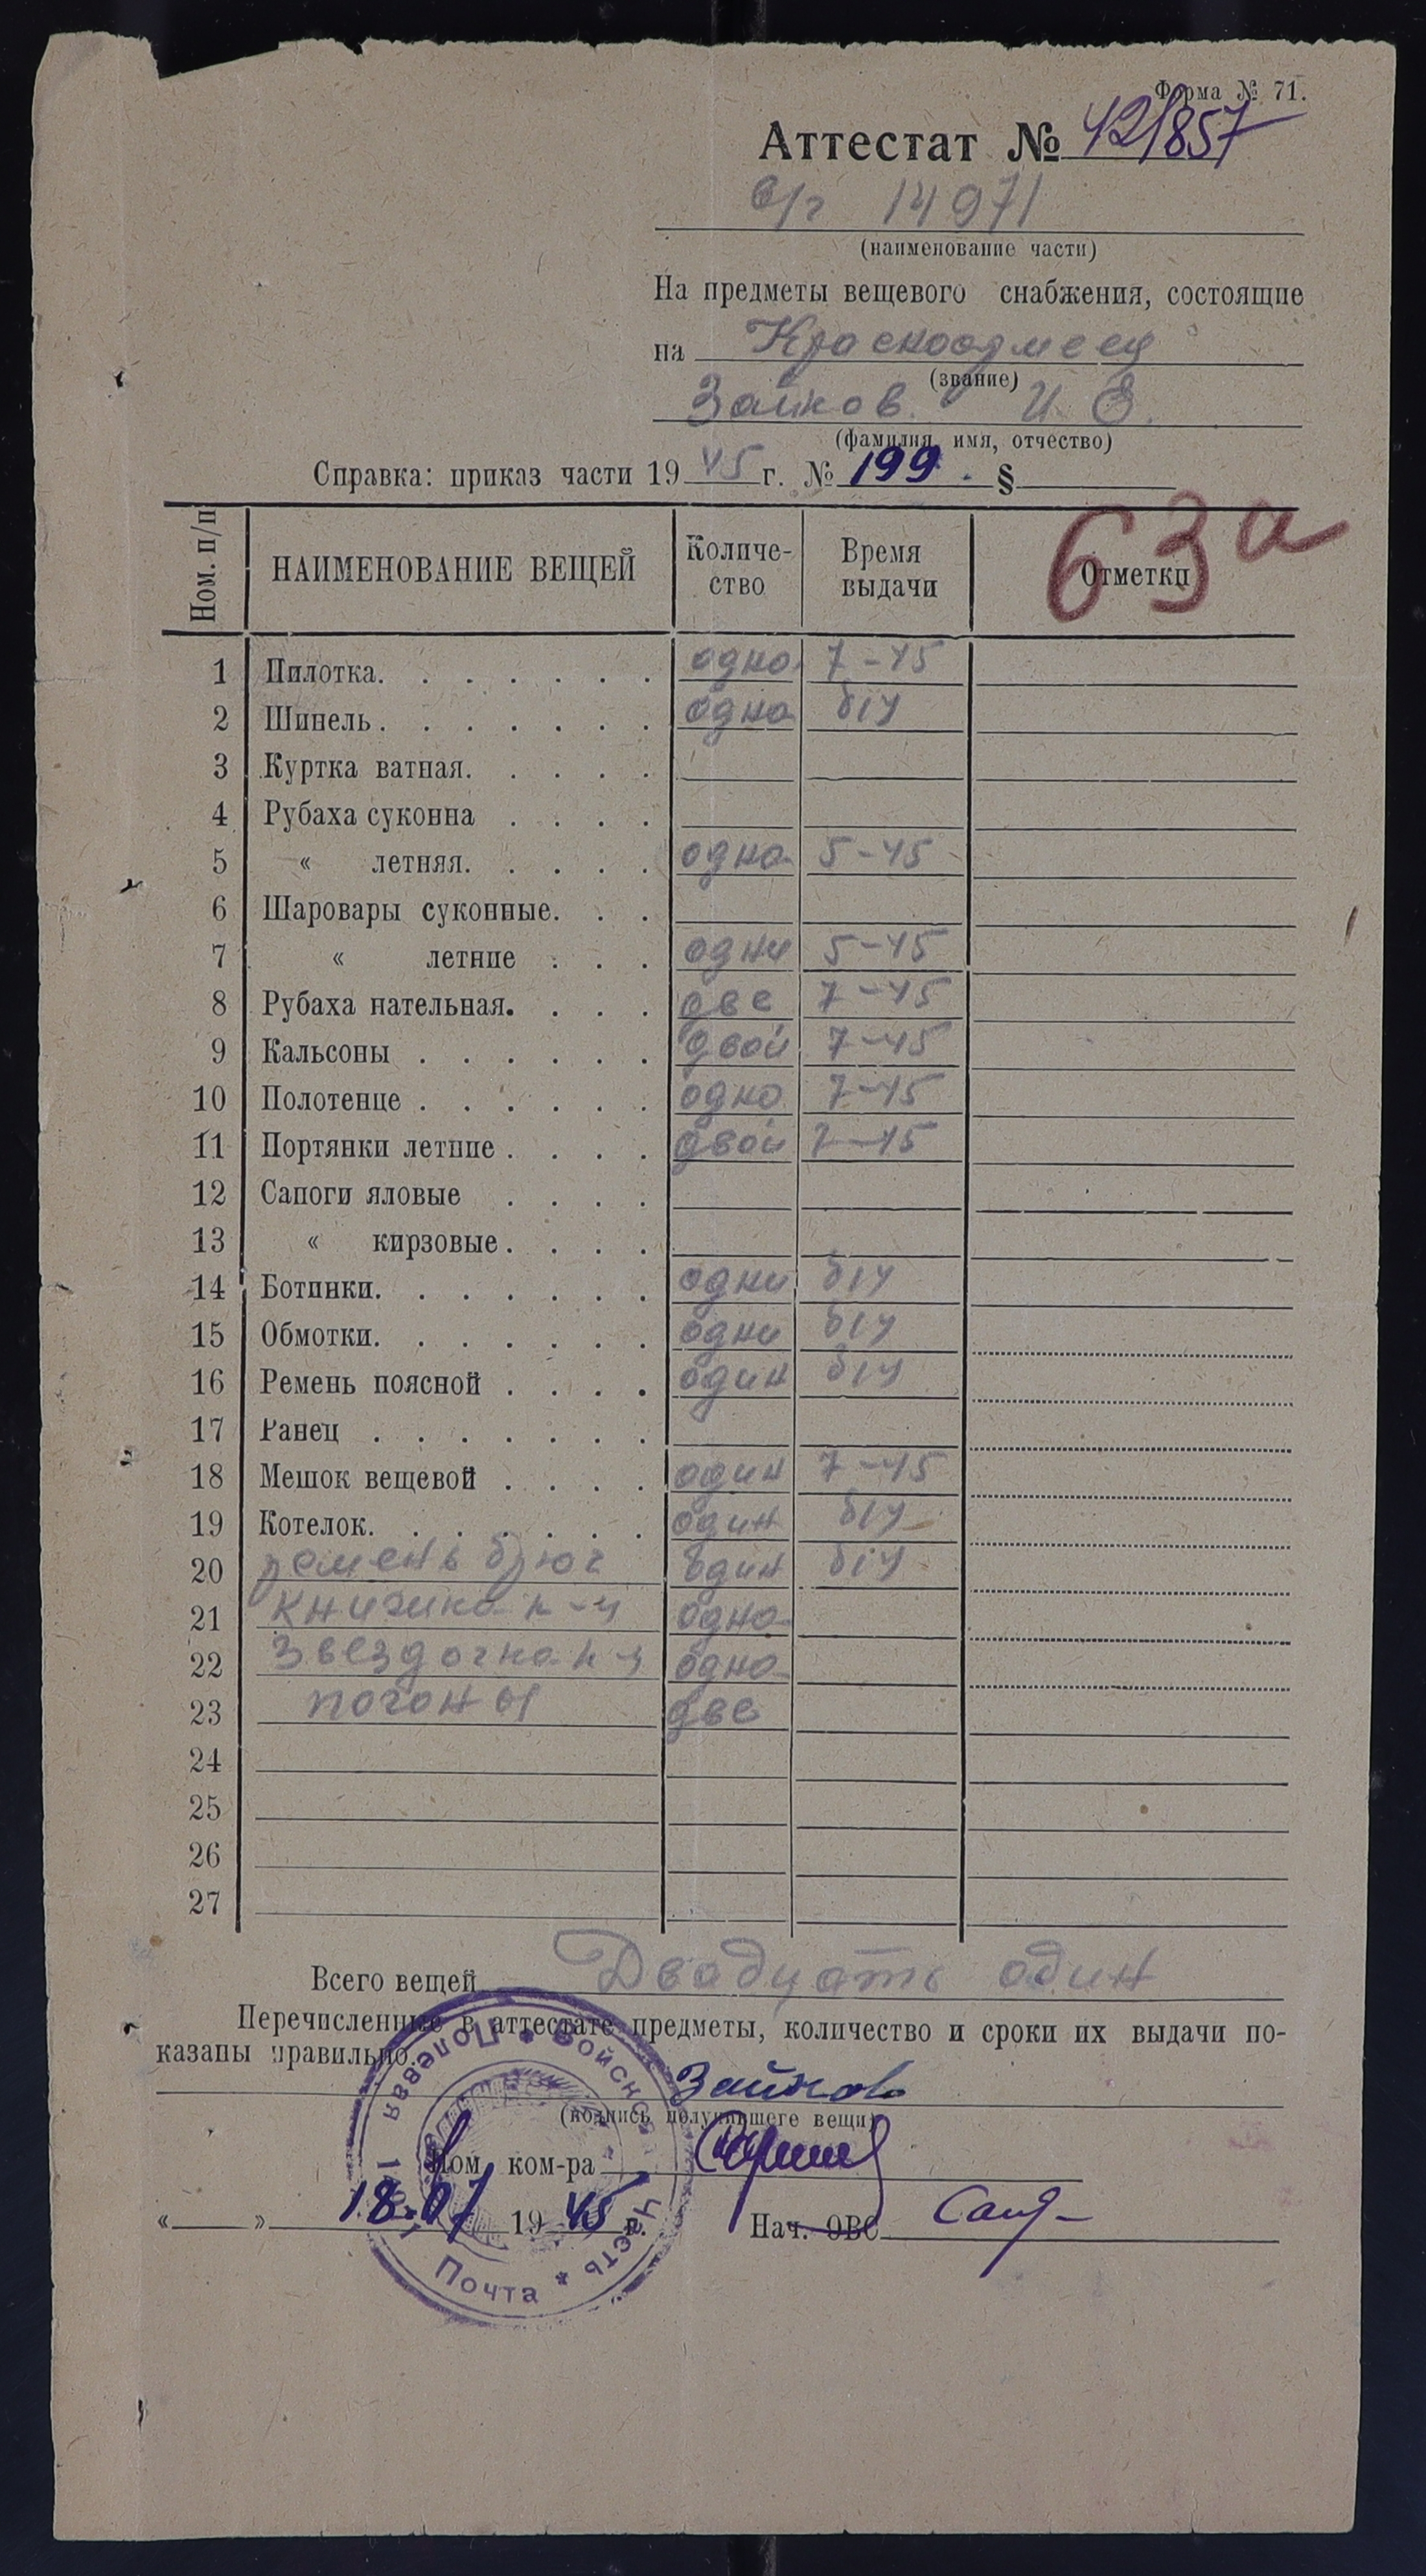 Форма № 71.
Аттестат № 42/857
в/г 14971
(наименование части)
На предметы вещевого снабжения, состоящие
на Красноармеец
(звание)
Зайков И. Е.
(фамилия, имя, отчество)
Справка: приказ части 1945 г. № 199. §
63а
Ном. п/п НАИМЕНОВАНИЕ ВЕЩЕЙ Количество Время выдачи Отметки
1 Пилотка. одна 7-45
2 Шинель. одна б/у
3 Куртка ватная.
4 Рубаха суконна
5 « летняя. одна 5-45
6 Шаровары суконные.
7 « летние одни 5-45
8 Рубаха нательная. две 7-45
9 Кальсоны двои 7-45
10 Полотенце одно 7-45
11 Портянки летние двои 7-45
12 Сапоги яловые
13 « кирзовые
14 Ботинки. одни б/у
15 Обмотки. одни б/у
16 Ремень поясной один б/у
17 Ранец
18 Мешок вещевой один 7-45
19 Котелок. один б/у
20 ремень брюч один б/у
21 книжка к-ц одна
22 Звездочка одна
23 погоны две
24
25
26
27
Всего вещей Двадцать один
Перечисленные в аттестате предметы, количество и сроки их выдачи по-
казаны правильно.
Зайков
(подпись получившего вещи)
Пом. ком-ра
18.07 1945 г. Нач. ОВС
Полевая Почта * Войск. Часть *